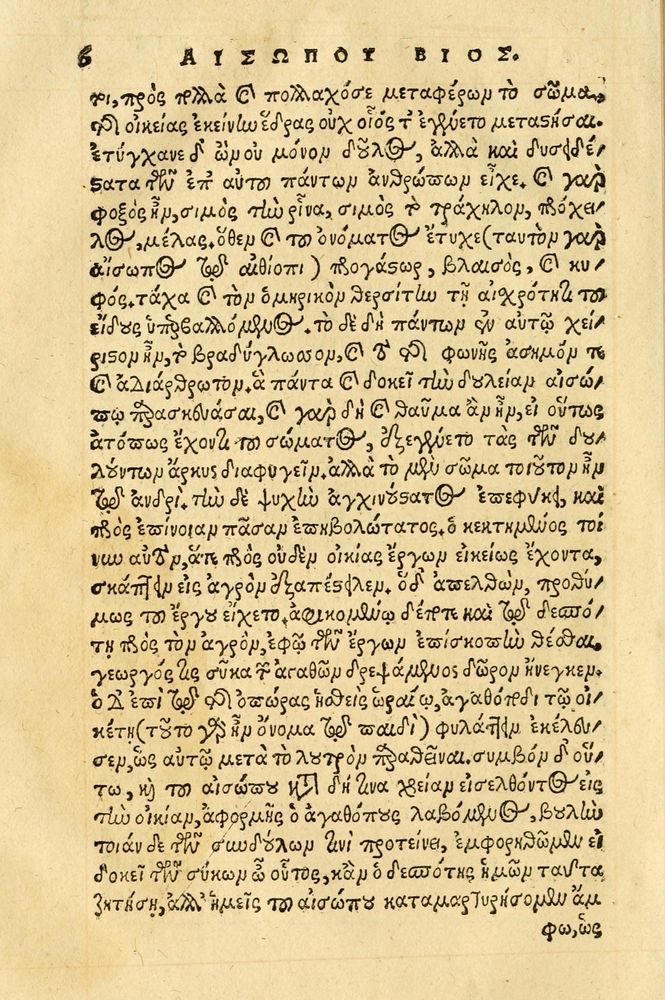 6 ΑΙΣΩΠΟΥ ΒΙΟΣ.
ρι, πρὸς ἀλλὰ καὶ πολλαχόσε μεταφέρων τὸ σῶμα,
τῆς οἰκείας ἐκείνην ἕδρας οὐχ οἷός τ' ἐγένετο μεταστῆσαι.
ἐτύγχανε δ' ὢν οὐ μόνον δοῦλος, ἀλλὰ καὶ δυσειδέ-
στατα τῶν ἐπ' αὐτοῦ πάντων ἀνθρώπων εἶχε. καὶ γὰρ
φοξὸς ἦν, σιμὸς τὴν ῥῖνα, σιμὸς τὸν τράχηλον, πρόχει-
λος, μέλας. ὅθεν καὶ τοῦ ὀνόματος ἔτυχε (ταυτὸν γὰρ
αἴσωπος τῷ αἰθίοπι) προγάστωρ, βλαισὸς, καὶ κυ-
φός. τάχα καὶ τὸν ὁμηρικὸν θερσίτην τῇ αἰσχρότητι τοῦ
εἴδους ὑπερβαλλόμενος. τὸ δὲ δὴ πάντων ἐν αὐτῷ χεί-
ριστον ἦν, τὸ βραδύγλωσσον, καὶ τὸ τῆς φωνῆς ἄσημόν τε
καὶ ἀδιάρθρωτον. ἃ πάντα καὶ δοκεῖ τὴν δουλείαν αἰσώ-
πῳ παρασκευάσαι, καὶ γὰρ δὴ καὶ θαῦμα ἂν ἦν, εἰ οὕτως
ἀτόπως ἔχοντι τοῦ σώματος, ἐξεγένετο τὰς τῶν δου-
λούντων ἄρκυς διαφυγεῖν. ἀλλὰ τὸ μὲν σῶμα τοιοῦτον ἦν
τῷ ἀνδρί. τὴν δὲ ψυχὴν ἀγχινούστατος ἐπεφύκει, καὶ
πρὸς ἐπίνοιαν πᾶσαν ἐπηβολώτατος. ὁ κεκτημένος τοί-
νυν αὐτὸν, ἅτε πρὸς οὐδὲν οἰκίας ἔργον εἰκείως ἔχοντα,
σκάπτειν εἰς ἀγρὸν ἐξαπέστειλεν. ὁ δ' ἀπελθὼν, προθύ-
μως τοῦ ἔργου εἴχετο. ἀφικομένῳ δέ ποτε καὶ τῷ δεσπό-
τῃ πρὸς τὸν ἀγρὸν, ἐφ' ᾧ τῶν ἔργων ἐπίσκοπὴν θέσθαι,
γεωργός τις σῦκα τῶν ἀγαθῶν δρεψάμενος δῶρον ἤνεγκεν.
ὁ δ' ἐπὶ τῷ τῆς ὀπώρας ἡσθεὶς ὡραίῳ, ἀγαθόποδι τῷ οἰ-
κέτῃ (τοῦτο γὰρ ἦν ὄνομα τῷ παιδὶ) φυλάττειν ἐκέλευ-
σεν, ὡς αὐτῷ μετὰ τὸ λουτρὸν παραθεῖναι. συμβὰν δ' οὕ-
τω, καὶ τοῦ αἰσώπου κατὰ δή τινα χρείαν εἰσελθόντος εἰς
τὴν οἰκίαν, ἀφορμῆς ὁ ἀγαθόπους λαβόμενος, βουλὴν
τοιάν δε τῶν συνδούλων τινὶ προτείνει, ἐμφορηθῶμεν εἰ
δοκεῖ τῶν σύκων ὦ οὗτος, κἂν ὁ δεσπότης ἡμῶν ταῦτα
ζητήσῃ, ἀλλ' ἡμεῖς τοῦ αἰσώπου καταμαρτυρήσομεν ἄμ
φω, ὡς